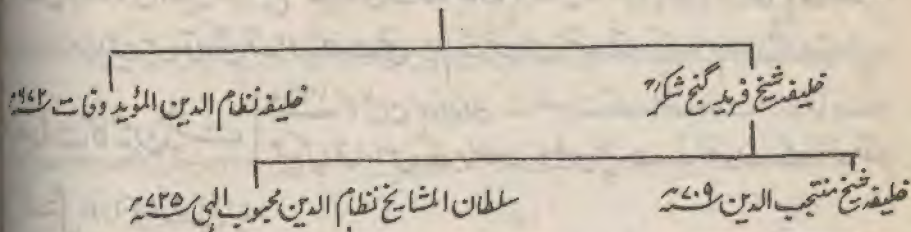 خلیفہ شیخ فرید گنج شکرؒ خلیفہ نظام الدین المؤید وفات ۶۷۲ھ
خلیفہ شیخ منتجب الدین ۷۰۹ھ سلطان المشایخ نظام الدین محبوب الٰہی ۷۲۵ھ